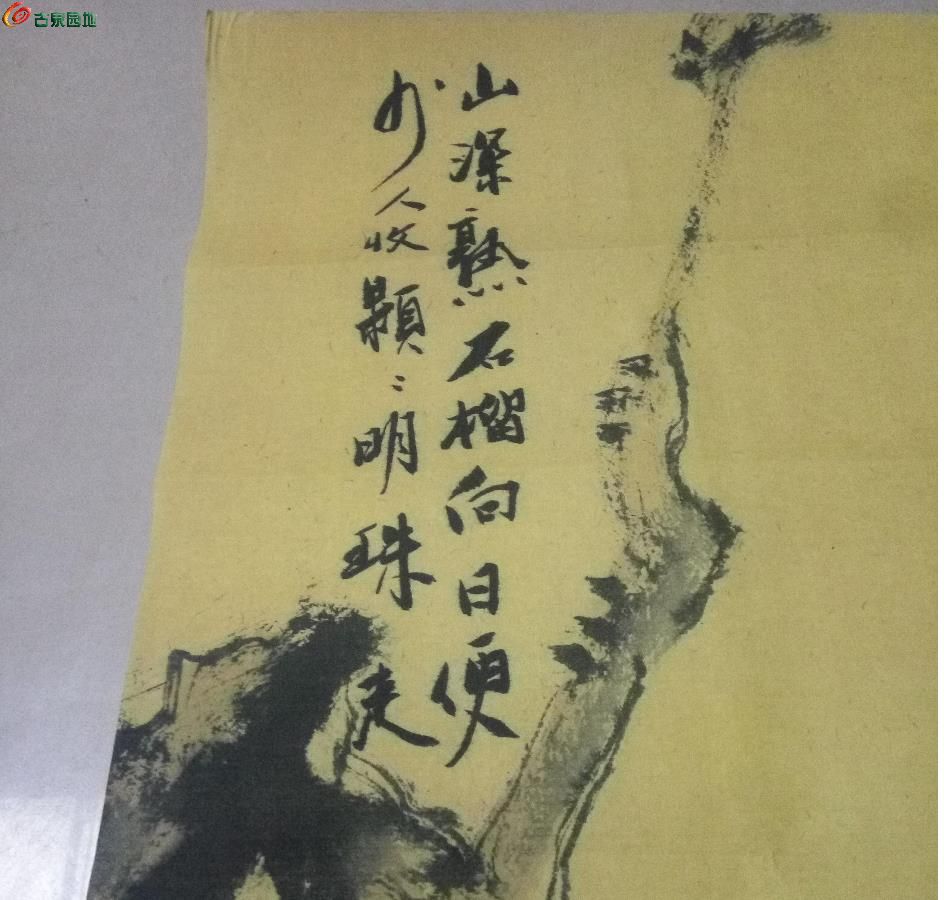 古泉园地
山深熟石榴向日便
少人收顆〻明珠走